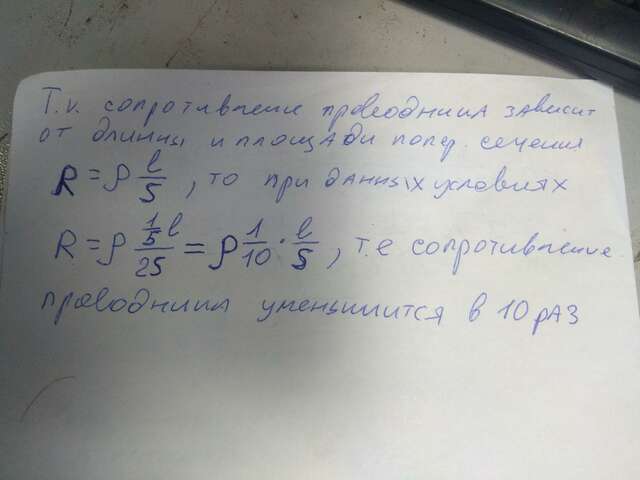 Т.к. сопротивление проводника зависит
от длинны и площади попер. сечения
R = ρ l/S, то при данных условиях
R = ρ (1/5 l)/(2S) = ρ 1/10 · l/S, т.е сопротивление
проводника уменьшится в 10 раз